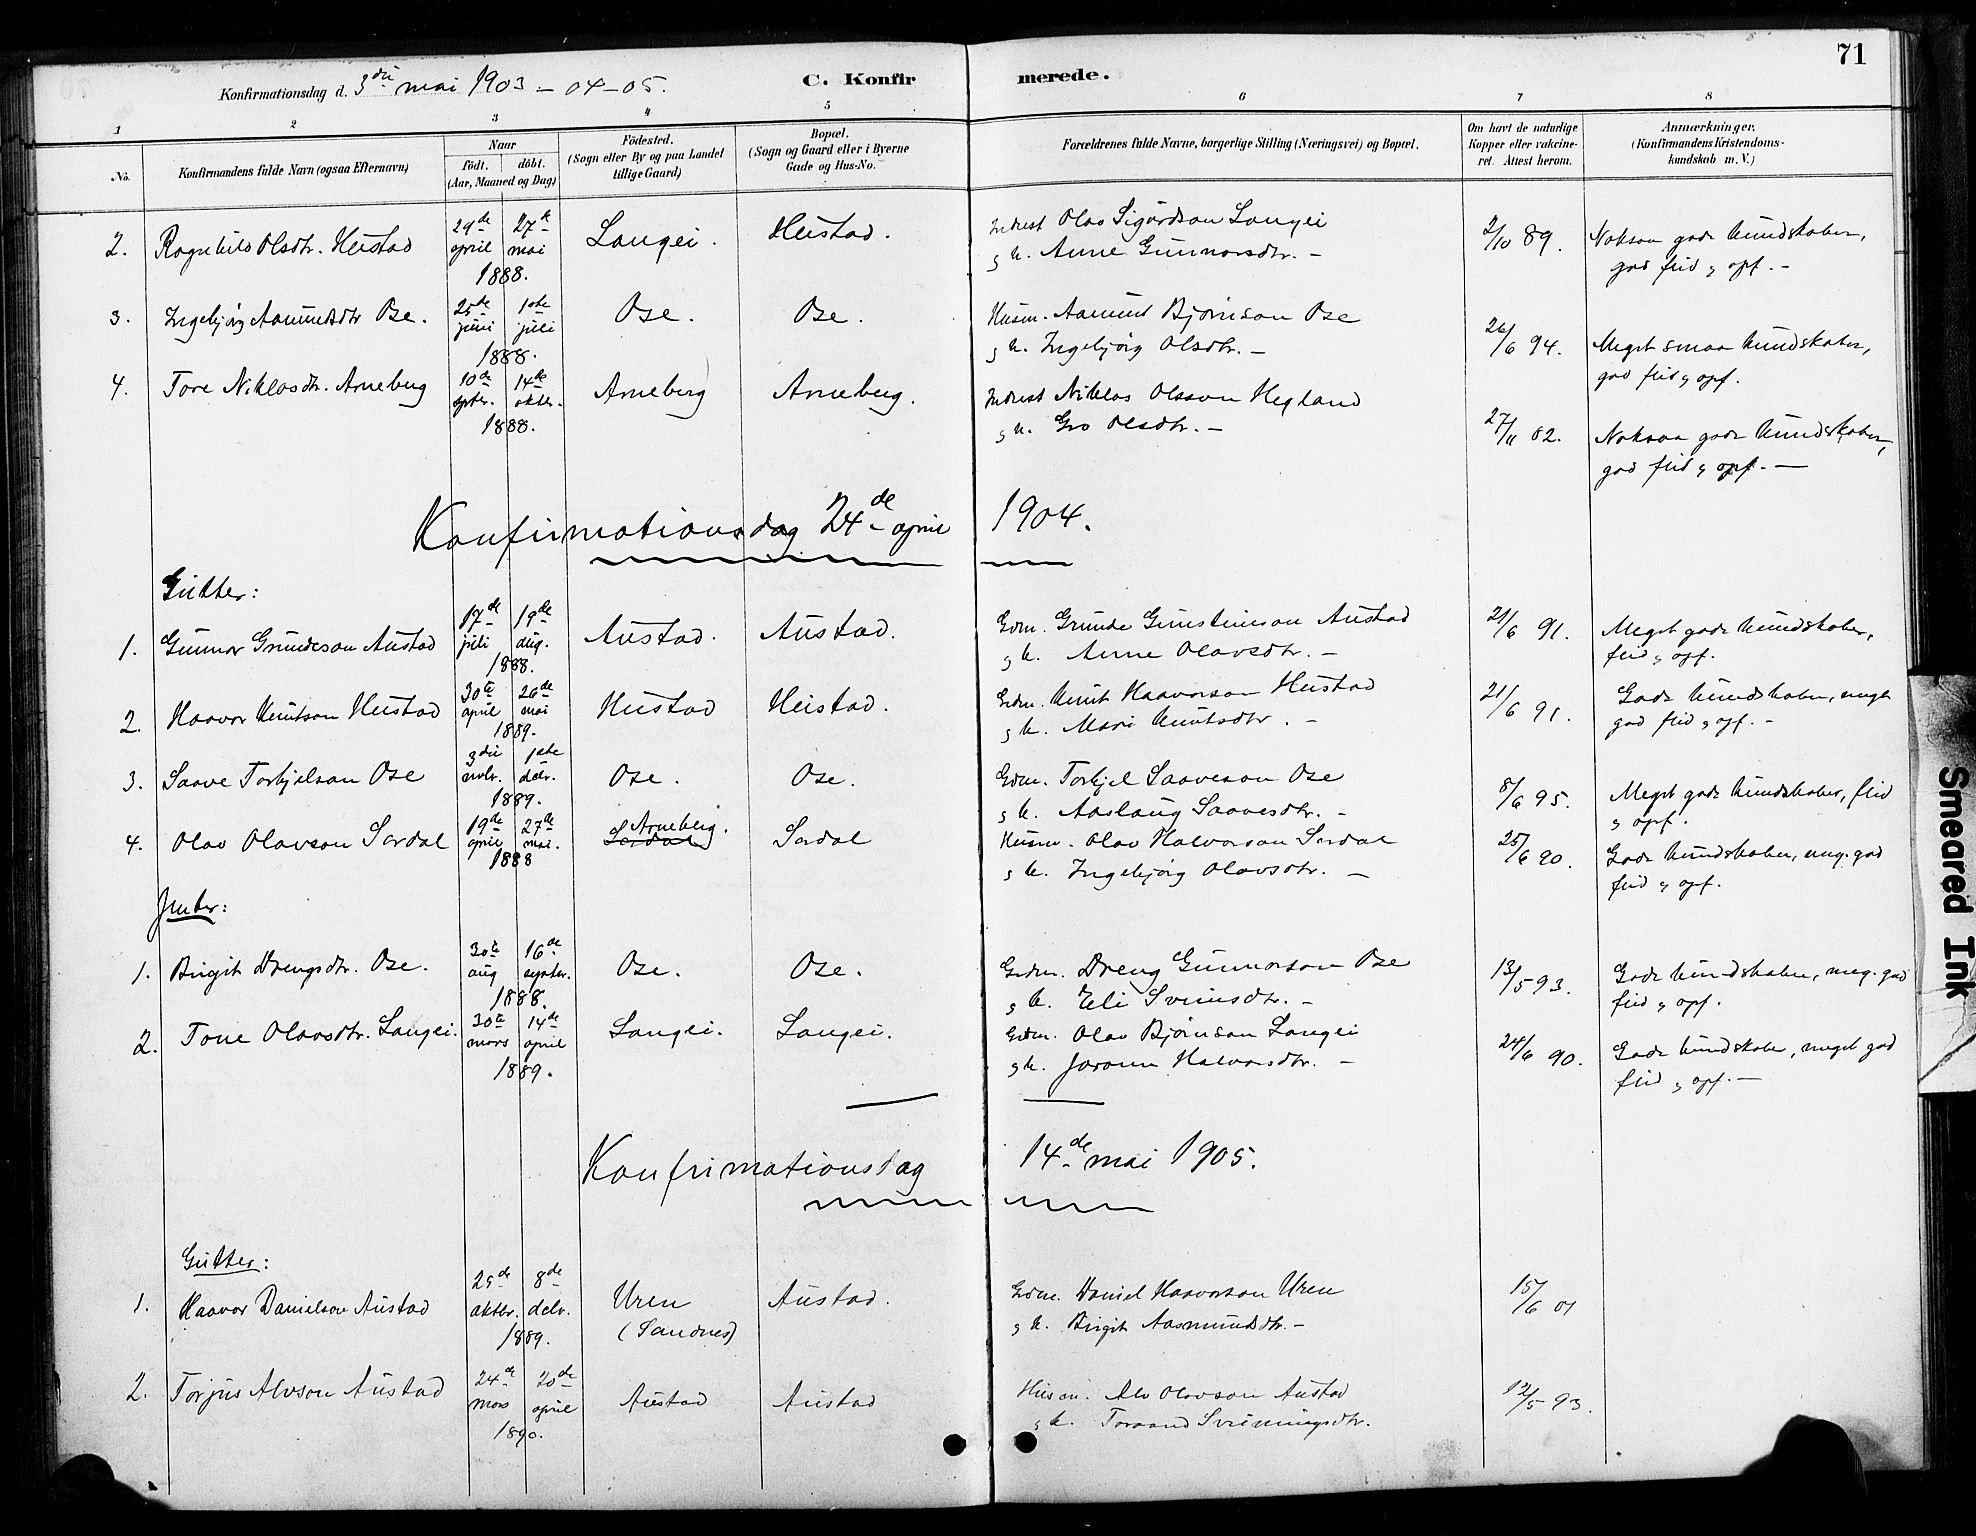 71
Konfirmationsdag d. 3die mai 1903 - 04 - 05.
C. Konfirmerede.
1 2 3 4 5 6 7 8
No.
Konfirmandens fulde Navn (ogsaa Efternavn)
Naar
födt. döbt.
(Aar, Maaned og Dag)
Födested.
(Sogn eller By og paa Landet
tillige Gaard)
Bopæl.
(Sogn og Gaard eller i Byerne
Gade og Hus-No.
Forældrenes fulde Navne, borgerlige Stilling (Næringsvei) og Bopæl.
Om havt de naturlige
Kopper eller vakcine-
ret. Attest herom.
Anmærkninger.
(Konfirmandens Kristendoms-
kundskab m. V.)
2. Ragnhild Olsdtr. Heistad 29de april 27de mai 1888. Langei. Heistad. Inderst Olav Sigurdson Langei 2/10 89. Noksaa gode kundskaber,
g k. Anne Gunnarsdtr. - god flid g opf. -
3. Ingebjörg Aamundsdtr Ose. 25de juni 1ste juli 1888. Ose. Ose. Husm. Aamund Bjørnson Ose 26/6 94. Meget smaa kundskaber,
g k. Ingebjörg Olsdtr. - god flid g opf.
4. Tore Niklosdtr. Arneberg 10de septbr. 14de oktbr. 1888. Arneberg Arneberg. Inderst Niklos Olsson Hegland 27/11 02. Noksaa gode kundskaber,
g k. Gro Olsdtr. - god flid g opf. -
Konfirmationsdag 24de april 1904.
Gutter:
1. Gunnar Grundeson Austad 17de juli 19de aug. 1888. Austad. Austad. Gdm. Grunde Gunsteinson Austad 21/6 91. Meget gode kundskaber,
g k. Anne Olavsdtr. - flid g opf.
2. Haavor Knutson Heistad 30te april 26de mai 1889. Heistad Heistad. Gdm. Knut Haavorson Heistad 21/6 91. Gode kundskaber, meget
g k. Mari Knutsdtr. - god flid g opf. -
3. Saave Torkjelson Ose 3die nvbr. 1ste debr. 1889. Ose. Ose. Gdm. Torkjel Saaveson Ose 8/6 95. Meget gode kundskaber, flid
g k. Aaslaug Saavesdtr. - g opf.
4. Olav Olavson Sordal 19de april 27de mai. 1888 Sordal Arneberg. Sordal Husm. Olav Halvorson Sordal 25/6 90. Gode kundskaber, meg. god
g k. Ingebjörg Olavsdtr. - flid g opf.
Jenter:
1. Birgit Drengsdtr. Ose. 30te aug 16de septbr. 1888. Ose. Ose. Gdm. Dreng Gunnarson Ose 13/5 93. Gode kundskaber, meg. god
g k. Eli Sveinsdtr. - flid g opf.
2. Tone Olavsdtr. Langei. 30te mars 14de april 1889. Langei. Langei. Gdm. Olav Bjørnson Langei 24/6 90. Gode kundskaber, meget god
g k. Joronn Halvorsdtr. - flid g opf. -
Konfirmationsdag 14de mai 1905.
Gutter:
1. Haavor Danielson Austad 25de oktbr. 8de debr. 1889. Uren Austad. Gdm. Daniel Haavorson Uren 15/6 01
(Sandnes) g k. Birgit Aasmundsdtr. -
2. Torjus Alvson Austad 24de mars 20de april 1890. Austad Austad Husm. Alv Olavson Austad 12/5 93.
g k. Toraand Sveinungsdtr.
Smeared Ink